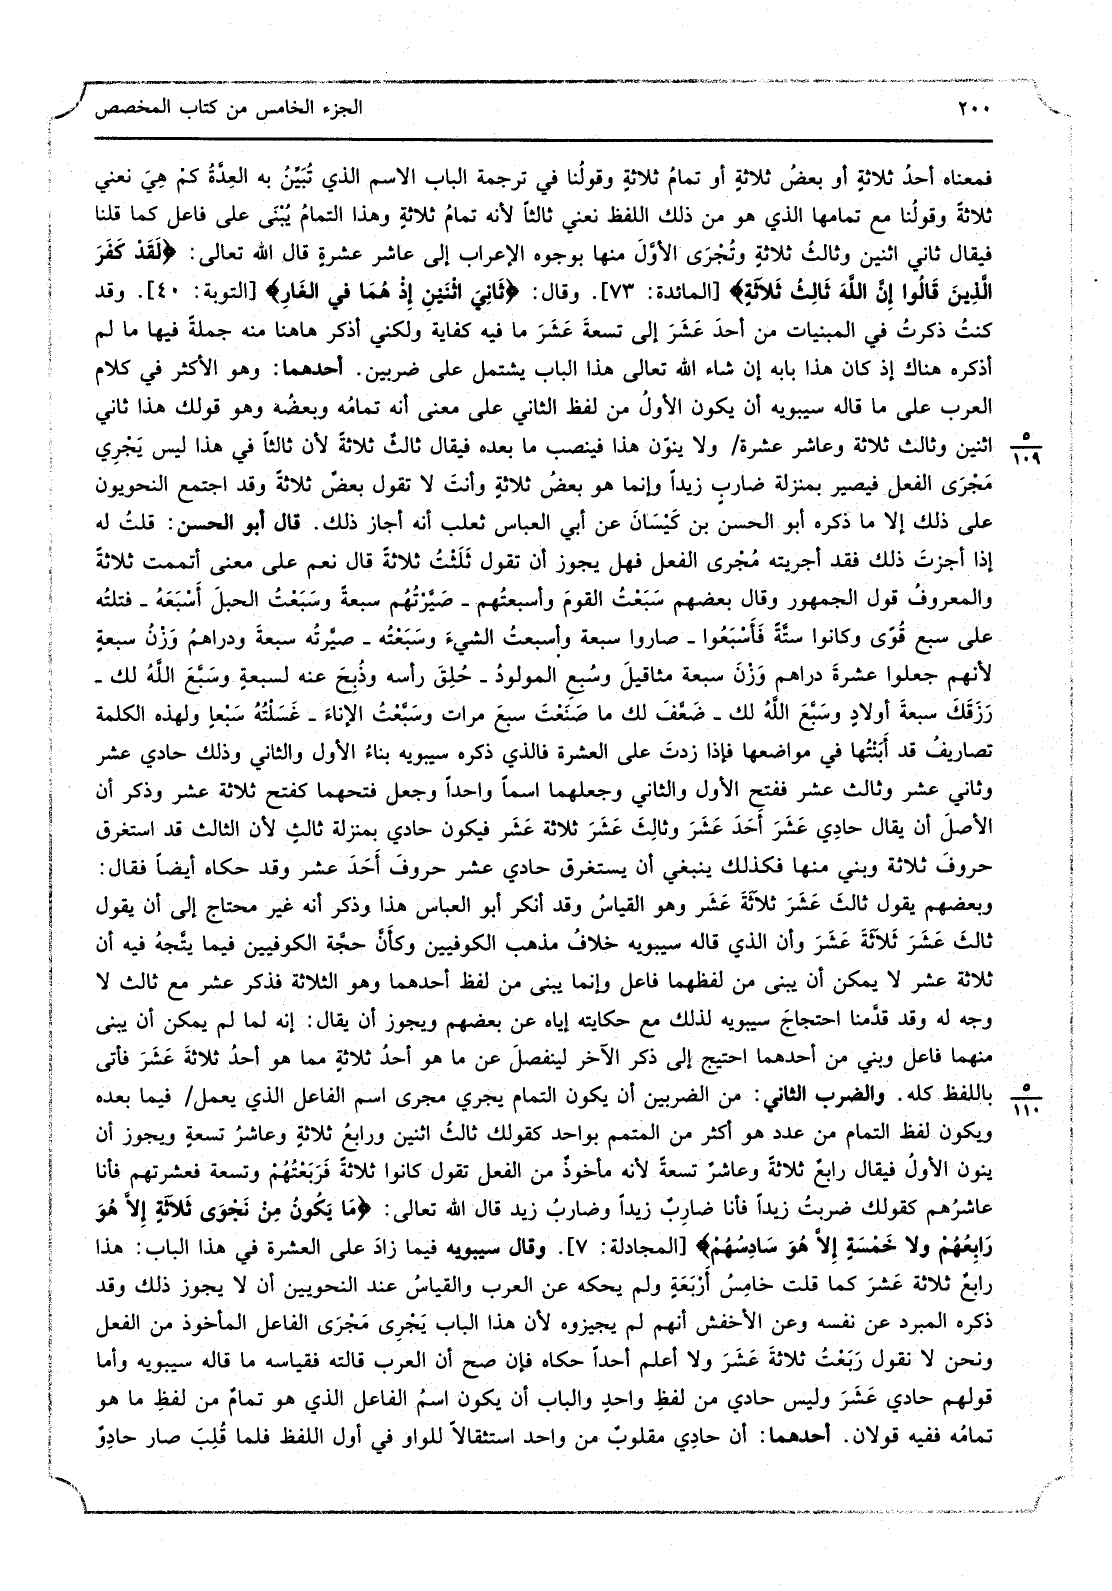 ٢٠٠ الجزء الخامس من كتاب المخصص
فمعناه أحدُ ثلاثةٍ أو بعضُ ثلاثةٍ أو تمامُ ثلاثةٍ وقولُنا في ترجمة الباب الاسم الذي تُبَيِّنُ به العِدَّةُ كمْ هِيَ نعني
ثلاثةً وقولُنا مع تمامها الذي هو من ذلك اللفظ نعني ثالثاً لأنه تمامُ ثلاثةٍ وهذا التمامُ يُبْنَى على فاعل كما قلنا
فيقال ثاني اثنين وثالثُ ثلاثةٍ وتُجْرَى الأوَّلَ منها بوجوه الإعراب إلى عاشر عشرةٍ قال الله تعالى: ﴿لَقَدْ كَفَرَ
الَّذِينَ قَالُوا إِنَّ اللَّهَ ثَالِثُ ثَلاَثَةٍ﴾ [المائدة: ٧٣]. وقال: ﴿ثَانِيَ اثْنَيْنِ إِذْ هُمَا في الغَارِ﴾ [التوبة: ٤٠]. وقد
كنتُ ذكرتُ في المبنيات من أحدَ عَشَرَ إلى تسعةَ عَشَرَ ما فيه كفاية ولكني أذكر هاهنا منه جملةً فيها ما لم
أذكره هناك إذ كان هذا بابه إن شاء الله تعالى هذا الباب يشتمل على ضربين. أحدهما: وهو الأكثر في كلام
العرب على ما قاله سيبويه أن يكون الأولُ من لفظ الثاني على معنى أنه تمامُه وبعضُه وهو قولك هذا ثاني
اثنين وثالث ثلاثة وعاشر عشرة/ ولا ينوّن هذا فينصب ما بعده فيقال ثالثٌ ثلاثةً لأن ثالثاً في هذا ليس يَجْرِي
٥
١٠٩
مَجْرَى الفعل فيصير بمنزلة ضاربٍ زيداً وإنما هو بعضُ ثلاثةٍ وأنتَ لا تقول بعضٌ ثلاثةً وقد اجتمع النحويون
على ذلك إلا ما ذكره أبو الحسن بن كَيْسَانَ عن أبي العباس ثعلب أنه أجاز ذلك. قال أبو الحسن: قلتُ له
إذا أجزتَ ذلك فقد أجريته مُجْرى الفعل فهل يجوز أن تقول ثَلَثْتُ ثلاثةً قال نعم على معنى أتممت ثلاثةً
والمعروفُ قول الجمهور وقال بعضهم سَبَعْتُ القومَ وأسبعتُهم ـ صَيَّرْتُهُم سبعةً وسَبَعْتُ الحبلَ أَسْبَعَهُ ـ فتلتُه
على سبع قُوًى وكانوا ستَّةً فَأَسْبَعُوا ـ صاروا سبعة وأسبعتُ الشيءَ وسَبَعْتُه ـ صيَّرتُه سبعةَ ودراهمُ وَزْنُ سبعةٍ
لأنهم جعلوا عشرةَ دراهم وَزْنَ سبعة مثاقيلَ وسُبع المولودُ ـ حُلِقَ رأسه وذُبِحَ عنه لسبعةٍ وسَبَّعَ اللَّهُ لك ـ
رَزَقَكَ سبعةَ أولادٍ وسَبَّعَ اللَّهُ لك ـ ضَعَّفَ لك ما صَنَعْتَ سبعَ مرات وسَبَّعْتُ الإناءَ ـ غَسَلْتُهُ سَبْعاٍ ولهذه الكلمة
تصاريفُ قد أَبَنْتُها في مواضعها فإذا زدتَ على العشرة فالذي ذكره سيبويه بناءُ الأول والثاني وذلك حادي عشر
وثاني عشر وثالث عشر ففتح الأول والثاني وجعلهما اسماً واحداً وجعل فتحهما كفتح ثلاثة عشر وذكر أن
الأصلَ أن يقال حادِي عَشَرَ أَحَدَ عَشَرَ وثالِثَ عَشَرَ ثلاثة عَشَر فيكون حادي بمنزلة ثالثٍ لأن الثالث قد استغرق
حروفَ ثلاثة وبني منها فكذلك ينبغي أن يستغرق حادي عشر حروفَ أَحَدَ عشر وقد حكاه أيضاً فقال:
وبعضهم يقول ثالثَ عَشَرَ ثلاَثَةَ عَشَر وهو القياسُ وقد أنكر أبو العباس هذا وذكر أنه غير محتاج إلى أن يقول
ثالثَ عَشَرَ ثَلاَثَةَ عَشَرَ وأن الذي قاله سيبويه خلافُ مذهب الكوفيين وكأنَّ حجَّة الكوفيين فيما يتَّجهُ فيه أن
ثلاثة عشر لا يمكن أن يبنى من لفظهما فاعل وإنما يبنى من لفظ أحدهما وهو الثلاثة فذكر عشر مع ثالث لا
وجه له وقد قدَّمنا احتجاجَ سيبويه لذلك مع حكايته إياه عن بعضهم ويجوز أن يقال: إنه لما لم يمكن أن يبنى
منهما فاعل وبني من أحدهما احتيج إلى ذكر الآخر لينفصلَ عن ما هو أحدُ ثلاثةٍ مما هو أحدُ ثلاثةَ عَشَرَ فأتى
باللفظ كله. والضرب الثاني: من الضربين أن يكون التمام يجري مجرى اسم الفاعل الذي يعمل/ فيما بعده
٥
١١٠
ويكون لفظ التمام من عدد هو أكثر من المتمم بواحد كقولك ثالثُ اثنين ورابعُ ثلاثةٍ وعاشرُ تسعةٍ ويجوز أن
ينون الأولُ فيقال رابعٌ ثلاثةً وعاشرٌ تسعةً لأنه مأخوذٌ من الفعل تقول كانوا ثلاثةً فَرَبَعْتُهُمْ وتسعة فعشرتهم فأنا
عاشرُهم كقولك ضربتُ زيداً فأنا ضارِبٌ زيداً وضاربُ زيد قال الله تعالى: ﴿مَا يَكُونُ مِنْ نَجْوَى ثَلاَثَةٍ إِلاَّ هُوَ
رَابِعُهُمْ ولا خَمْسَةٍ إِلاَّ هُوَ سَادِسُهُمْ﴾ [المجادلة: ٧]. وقال سيبويه فيما زادَ على العشرة في هذا الباب: هذا
رابعٌ ثلاثة عَشَرَ كما قلت خامِسُ أَرْبَعَةٍ ولم يحكه عن العرب والقياسُ عند النحويين أن لا يجوز ذلك وقد
ذكره المبرد عن نفسه وعن الأخفش أنهم لم يجيزوه لأن هذا الباب يَجْرِى مَجْرَى الفاعل المأخوذ من الفعل
ونحن لا نقول رَبَعْتُ ثلاثةَ عَشَرَ ولا أعلم أحداً حكاه فإن صح أن العرب قالته فقياسه ما قاله سيبويه وأما
قولهم حادي عَشَرَ وليس حادي من لفظِ واحدٍ والباب أن يكون اسمُ الفاعل الذي هو تمامٌ من لفظِ ما هو
تمامُه ففيه قولان. أحدهما: أن حادِي مقلوبٌ من واحد استثقالاً للواو في أول اللفظ فلما قُلِبَ صار حادِوٌ